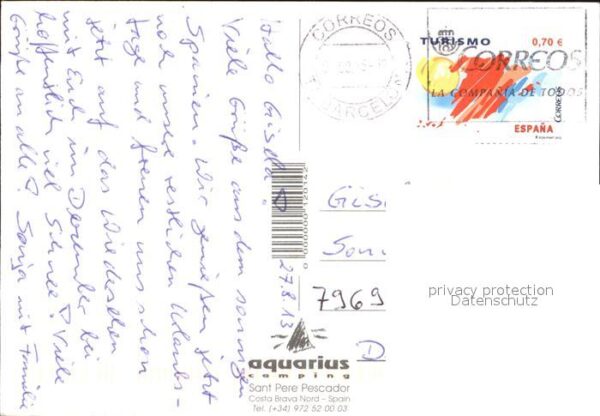 Hallo Gisela!
Viele Grüße aus dem sonnigen
Spanien. Wir genießen jetzt
noch unsere restlichen Urlaubs-
tage und freuen uns schon
jetzt auf das Wiedersehen
mit Euch im Dezember bei
hoffentlich viel Schnee! Viele
Grüße an alle! Sonja mit Familie
27.8.13
CORREOS
BARCELONA
TURISMO
0,70 €
CORREOS
LA COMPAÑIA DE TODOS
CORREOS
ESPAÑA
0000000120142
Gis
Son
7969
D
privacy protection
Datenschutz
aquarius
camping
Sant Pere Pescador
Costa Brava Nord - Spain
Tel. (+34) 972 52 00 03